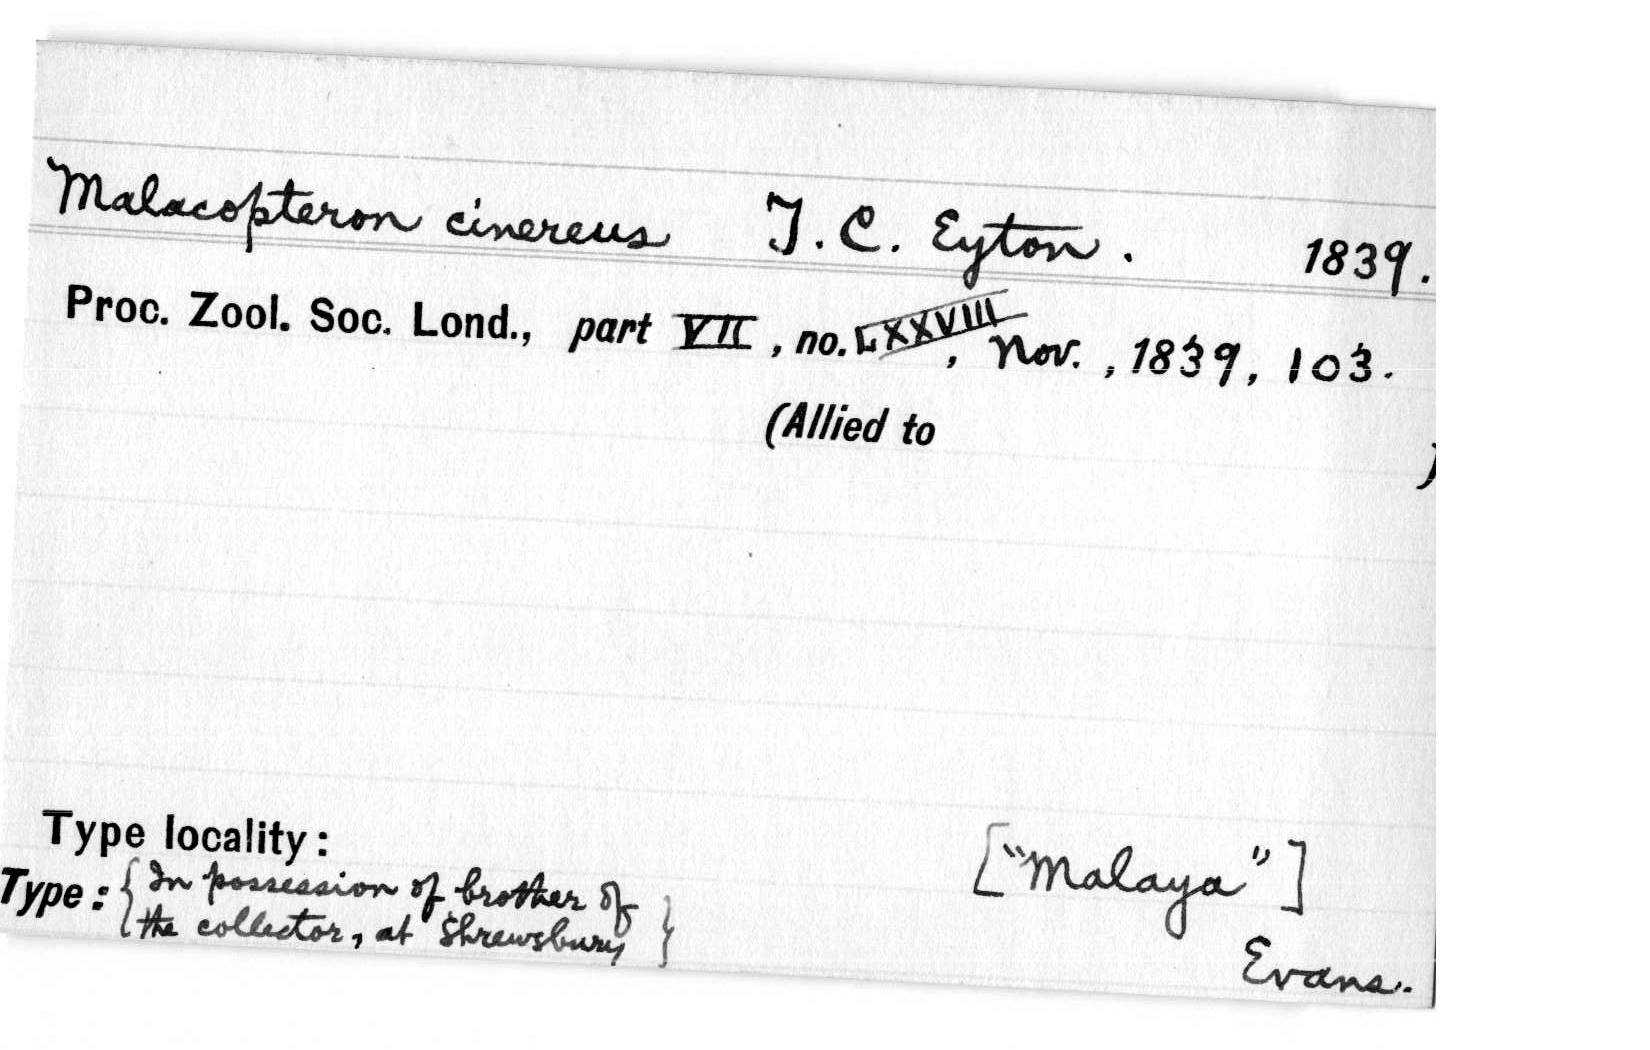 Malacopteron cinereus T. C. Eyton. 1839.
Proc. Zool. Soc. Lond., part VII, no. LXXVIII, Nov., 1839, 103.
(Allied to )
Type locality: ["Malaya"]
Type: {In possession of brother of
the collector, at Shrewsbury}
Evans.